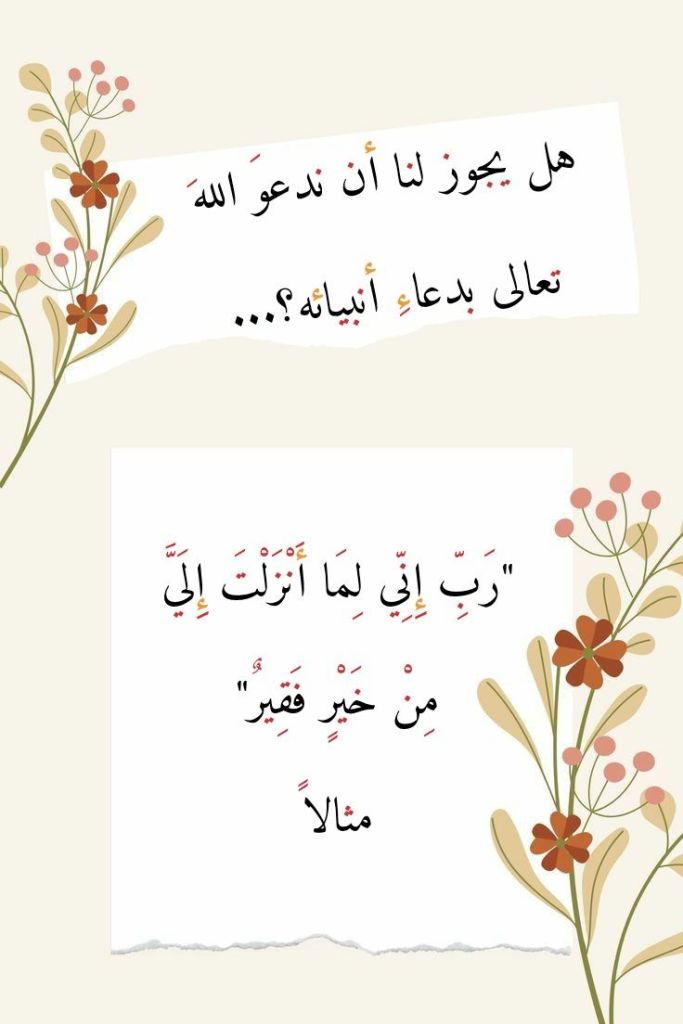 هل يجوز لنا أن ندعوَ اللهَ
تعالى بدعاءِ أنبيائه؟...
"رَبِّ إِنِّي لِمَا أَنْزَلْتَ إِلَيَّ
مِنْ خَيْرٍ فَقِيرٌ"
مثالاً